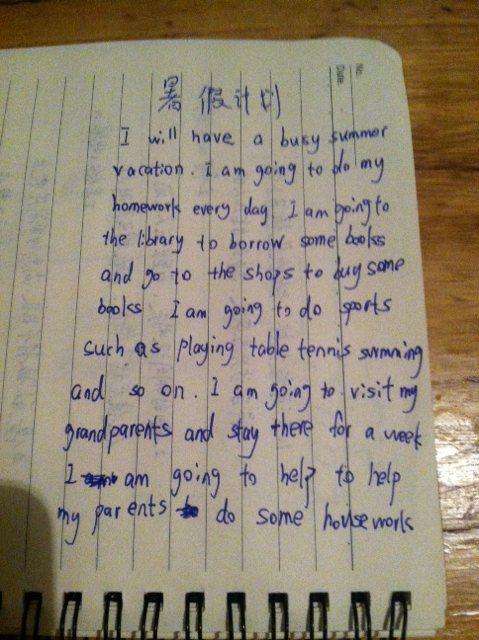 No.
Date
暑假计划
I will have a busy summer
vacation. I am going to do my
homework every day I am going to
the library to borrow some books
and go to the shops to buy some
books I am going to do sports
such as playing table tennis swmming
and so on. I am going to visit my
grandparents and stay there for a week
I am going to help to help
my parents do some housework